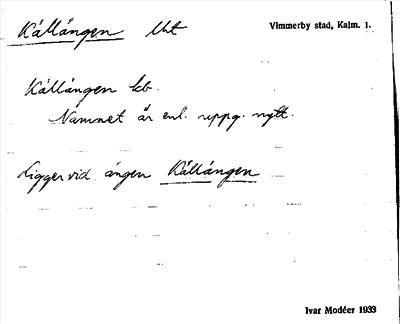 Källängen Uht
Vimmerby stad, Kalm. l.
Källängen lds.
Namnet är enl. uppg. nytt.
Ligger vid ängen Källängen
Ivar Modéer 1933